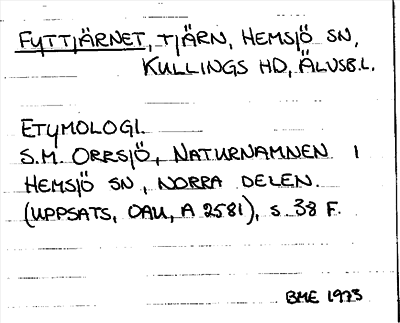 FYTTJÄRNET, TJÄRN, HEMSJÖ SN,
KULLINGS HD, ÄLVSB.L.
ETYMOLOGI.
S.M. ORRSJÖ, NATURNAMNEN I
HEMSJÖ SN, NORRA DELEN.
(UPPSATS, OAU, A 2581), S. 38 F.
BME 1973